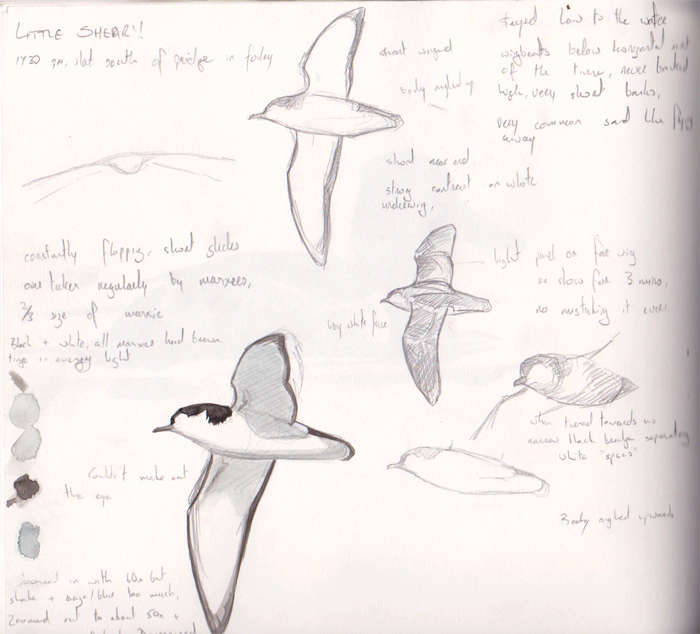 LITTLE SHEAR!!
1930 pm, slat south of bridge in today
short winged
body angled up
stayed low to the water
wigbeats below horizontal most
of the time, never banked
high, very short banks,
very common sand like flappy
away
short rear end
strong contrast on white
underwing,
constantly flapping, short glides
overtaken regularly by manxees,
2/3 size of manxie
Black + white, all manxees had brown
tinge in evening light
very white face
light panel on fore wing
on show for 3 mins,
no mistaking it ever
when turned towards us
narrow black bridge separating
white "specs"
Body angled upwards
Couldn't make out
the eye
Zoomed in with 60x but
shake + haze/blue too much,
Zoomed out to about 50x +